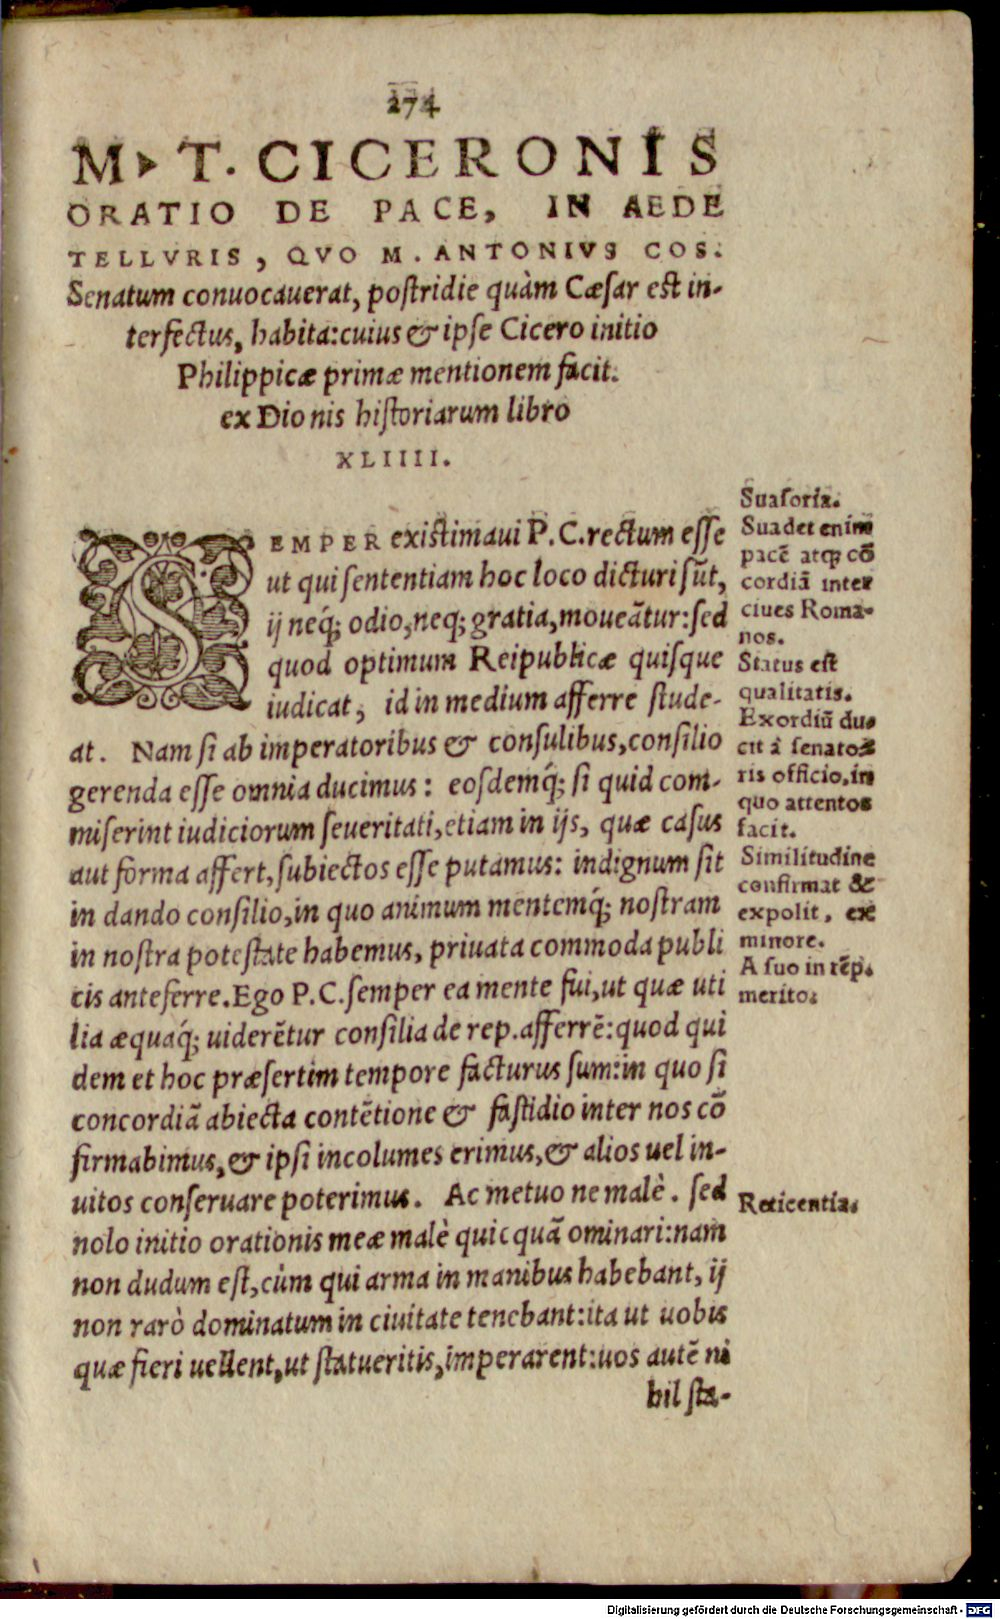 274
M. T. CICERONIS
ORATIO DE PACE, IN AEDE
TELLVRIS, QVO M. ANTONIVS COS.
Senatum conuocauerat, postridie quàm Cæsar est in-
terfectus, habita: cuius & ipse Cicero initio
Philippicæ primæ mentionem facit.
ex Dionis historiarum libro
XLIIII.
SEMPER existimaui P. C. rectum esse
ut qui sententiam hoc loco dicturi sūt,
ij neq́; odio, neq; gratia, moueātur: sed
quod optimum Reipublicæ quisque
iudicat, id in medium afferre stude-
at. Nam si ab imperatoribus & consulibus, consilio
gerenda esse omnia ducimus: eosdemq́; si quid com-
miserint iudiciorum seueritati, etiam in ijs, quæ casus
aut forma affert, subiectos esse putamus: indignum sit
in dando consilio, in quo animum mentemq́; nostram
in nostra potestate habemus, priuata commoda publi
cis anteferre. Ego P. C. semper ea mente fui, ut quæ uti
lia æquaq́; uiderētur consilia de rep. afferrē: quod qui
dem et hoc præsertim tempore facturus sum: in quo si
concordiā abiecta contētione & fastidio inter nos cō
firmabimus, & ipsi incolumes erimus, & alios uel in-
uitos conseruare poterimus. Ac metuo ne malè. sed
nolo initio orationis meæ malè quicquā ominari: nam
non dudum est, cùm qui arma in manibus habebant, ij
non rarò dominatum in ciuitate tenebant: ita ut uobis
quæ fieri uellent, ut statueritis, imperarent: uos autē ni
hil sta-
Suasoria.
Suadet enim
pacē atq; cō
cordiā inter
ciues Roma-
nos.
Status est
qualitatis.
Exordiū du-
cit à senato-
ris officio, in
quo attentos
facit.
Similitudine
confirmat &
expolit, ex
minore.
A suo in rēp.
merito.
Reticentia.
Digitalisierung gefördert durch die Deutsche Forschungsgemeinschaft - DFG